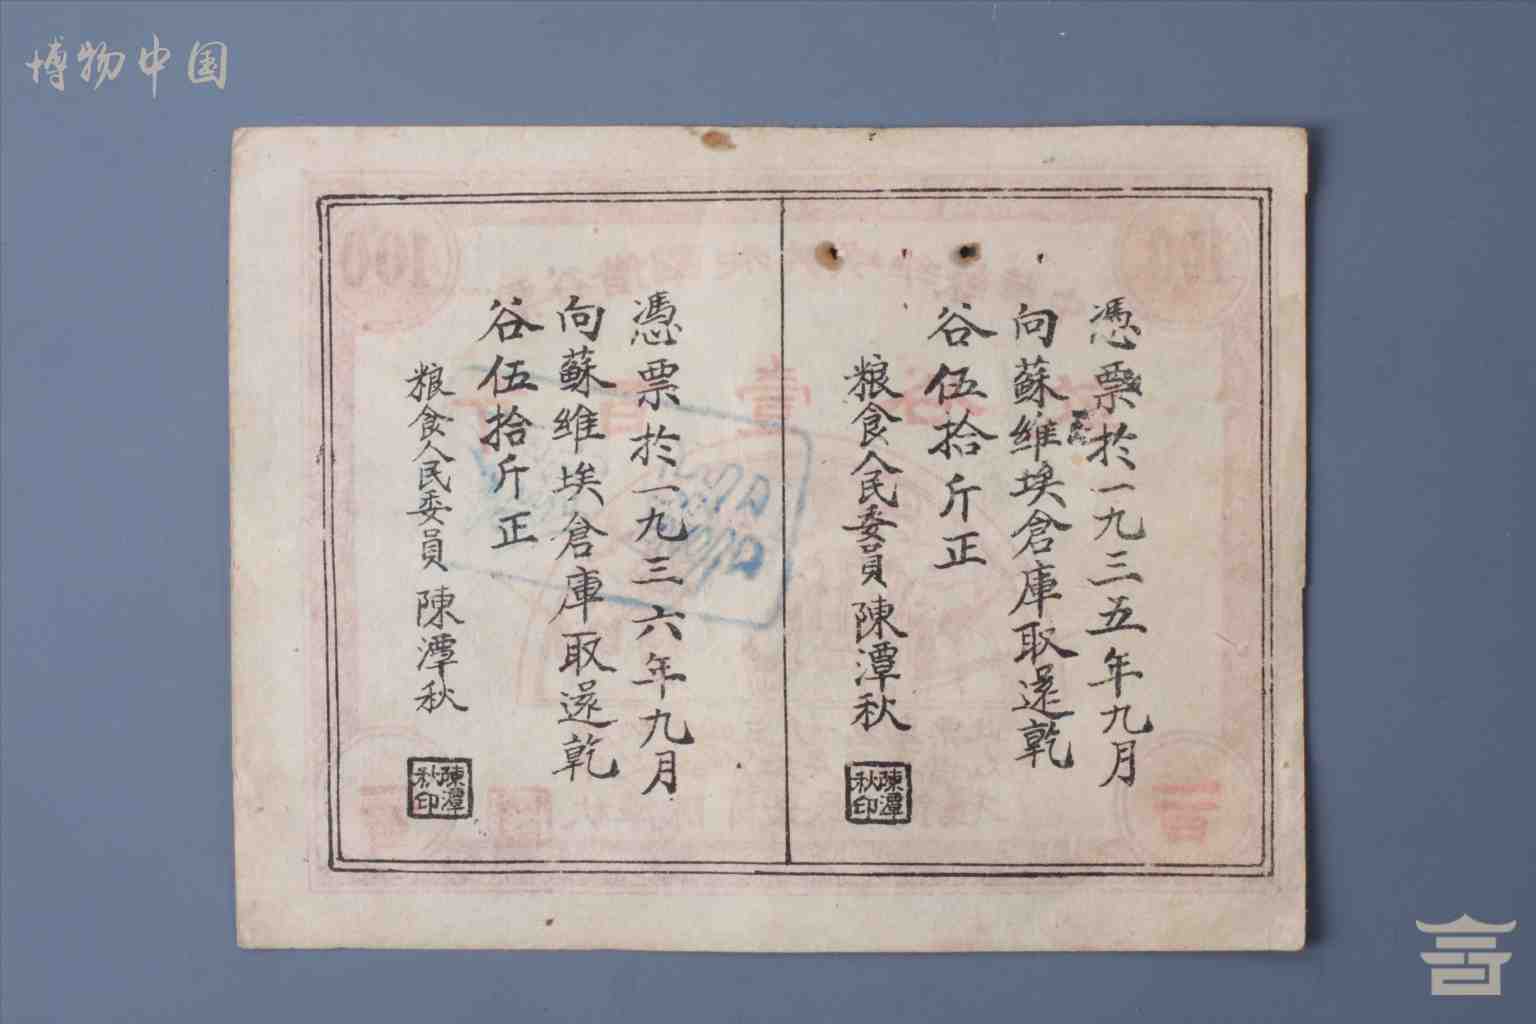 博物中国
憑票於一九三五年九月
向蘇维埃倉庫取還乾
谷伍拾斤正
粮食人民委員陳潭秋
陳潭秋印
憑票於一九三六年九月
向蘇维埃倉庫取還乾
谷伍拾斤正
粮食人民委員 陳潭秋
陳潭秋印
100
壹